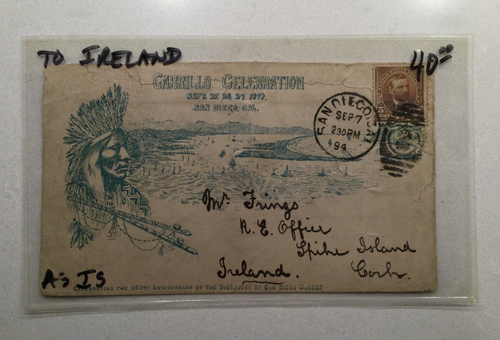 TO IRELAND
40⁰⁰
CABRILLO CELEBRATION
SEPT. 28.
SAN DIEGO, CAL.
SAN DIEGO, CAL
SEP 7
230PM
Mr. Frings
R. E. Office
Spike Island
Ireland. Cork.
AS IS
CELEBRATING THE ANNIVERSARY OF THE DISCOVERY OF SAN DIEGO HARBOR